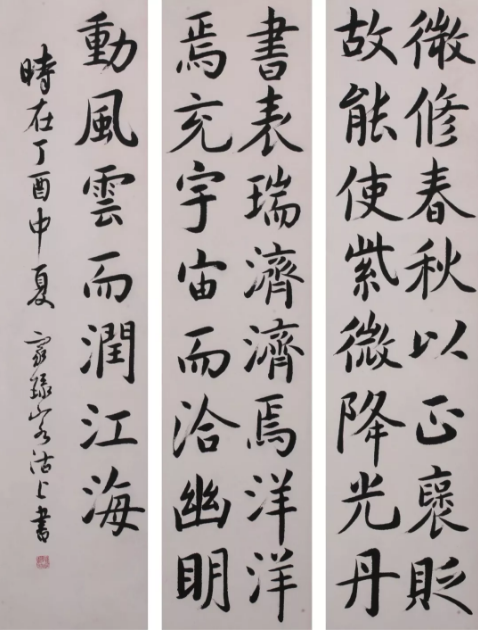 微修春秋以正褒貶
故能使紫微降光丹
書表瑞濟濟焉洋洋
焉充宇宙而洽幽明
動風雲而潤江海
時在丁酉中夏
沽上書